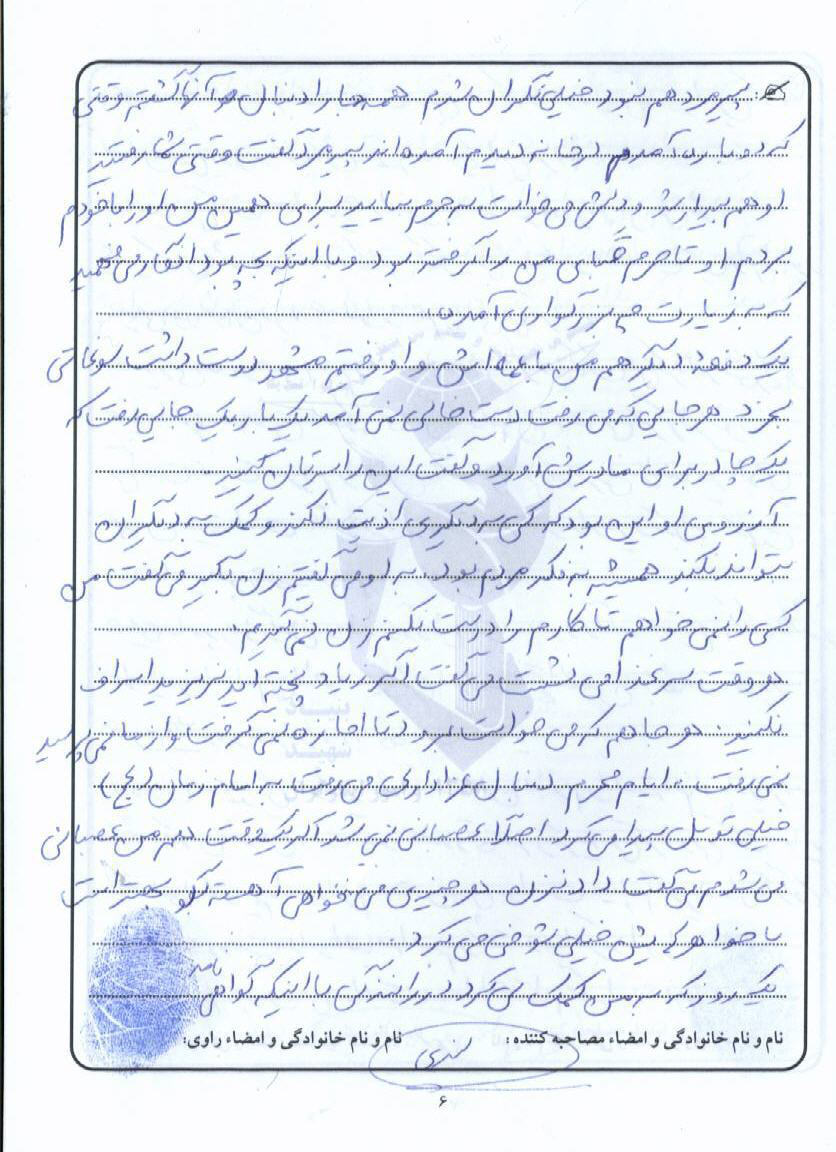 پیرمرد هم نبود خیلی نگران شدم همه جا را دنبال آنها گشتم وقتی
که دوباره آمدم در خانه دیدم آمده‌اند پیرمرد گفت وقتی شما رفتید
او هم بیدار شد و دلش می خواست به حرم بیاید برای همین من او را با خودم
بردم او تا حرم عبای من را گرفته بود و با اینکه بچه بود انگار می فهمید
که به زیارت چه بزرگواری آمده.
یک دفعه دیگر هم من با عمه اش و او رفتیم مشهد دوست داشت سوغاتی
بخرد هر جایی که می رفت دست خالی نمی آمد یک بار یک جایی رفت که
یک چادر برای مادرش آورد و گفت این را سرتان کنید.
آرزوی او این بود که کسی به دیگری اذیت نکند و کمک به دیگران
بتواند بکند همیشه به فکر مردم بود. به او می گفتیم زن بگیر می گفت من
کسی را نمی خواهم تا کارم را درست نکنم زن نمی گیرم.
هر وقت سر غذا می نشست می گفت اگر زیاد پخته اید نریزید اسراف
نکنید. هر جا هم که می خواست برود تا اجازه نمی گرفت و از ما نمی پرسید
نمی رفت. ایام محرم دنبال عزاداری می رفت به امام زمان (عج)
خیلی توسل پیدا می کرد اصلا عصبانی نمی شد اگر یک وقت هم من عصبانی
می شدم می گفت داد نزن هر چیزی می خواهی آهسته بگو بهتر است
با خواهرهایش خیلی شوخی می کرد.
یک روز که به من کمک می کرد در رانندگی با اینکه گواهی نامه
نام و نام خانوادگی و امضاء مصاحبه کننده : نام و نام خانوادگی و امضاء راوی:
۶
بنیاد
شهید